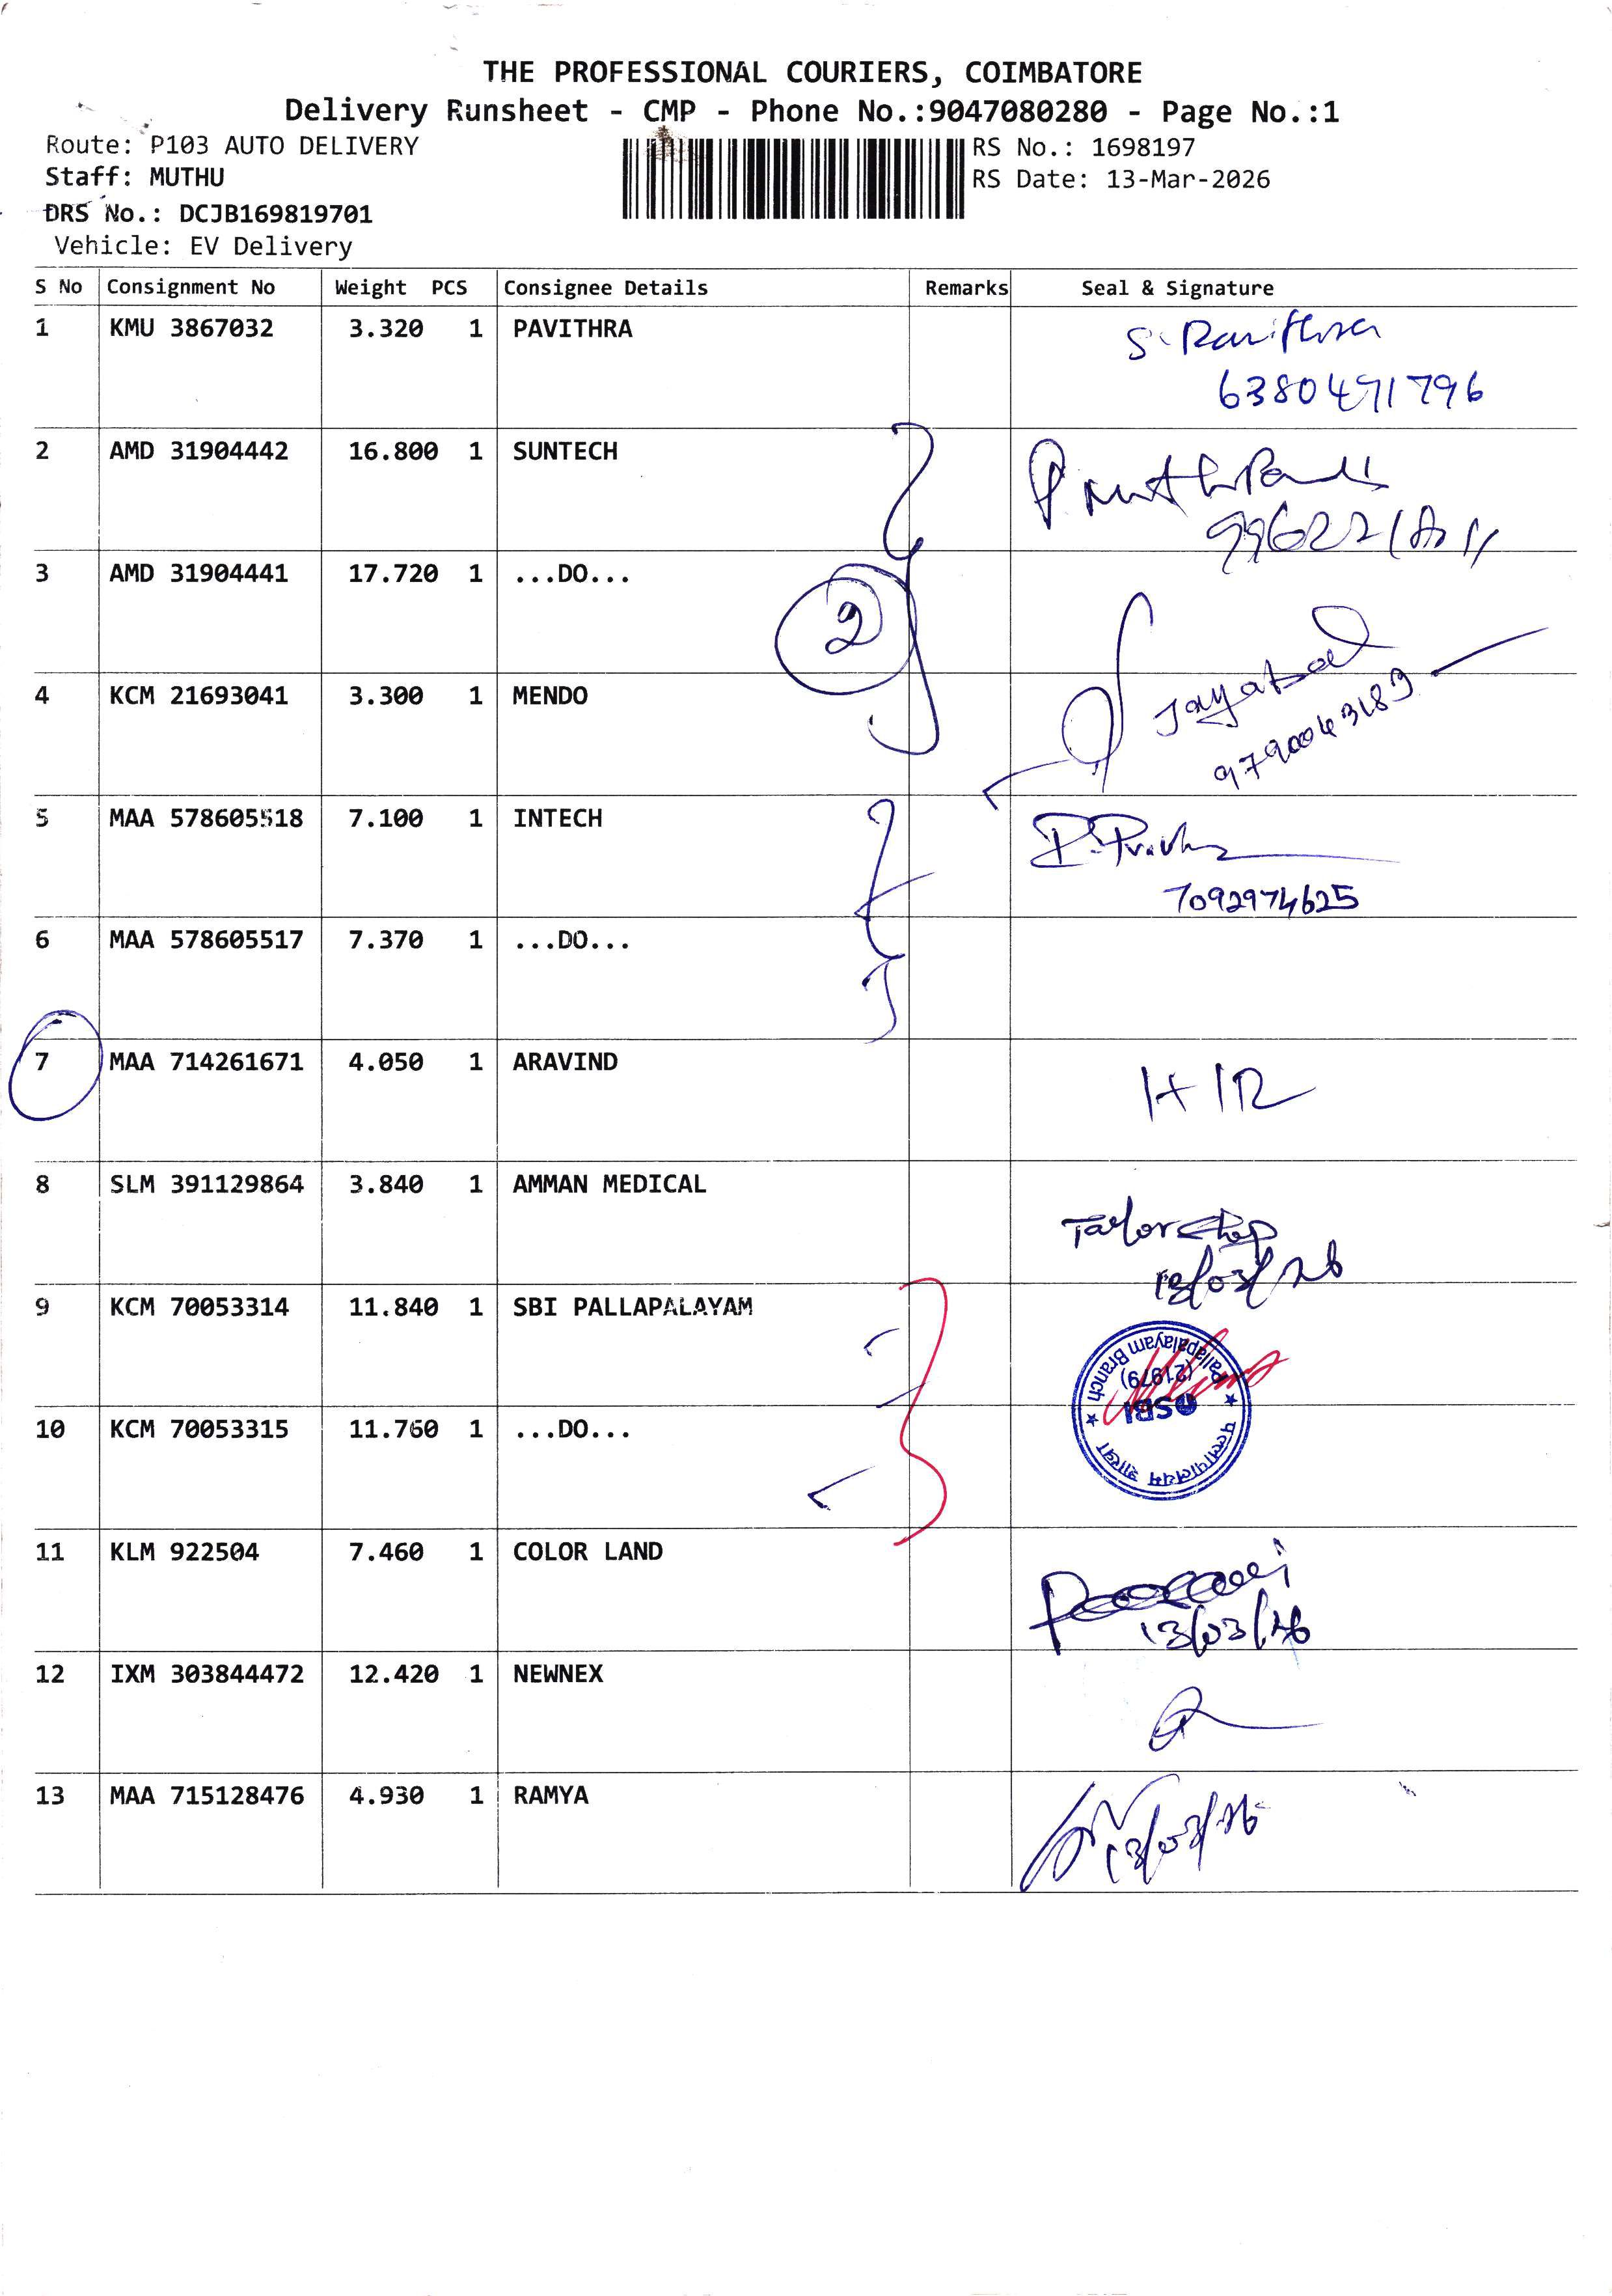 THE PROFESSIONAL COURIERS, COIMBATORE
Delivery Runsheet - CMP - Phone No.:9047080280 - Page No.:1
Route: P103 AUTO DELIVERY
Staff: MUTHU
DRS No.: DCJB169819701
Vehicle: EV Delivery
RS No.: 1698197
RS Date: 13-Mar-2026
S No Consignment No Weight PCS Consignee Details Remarks Seal & Signature
1 KMU 3867032 3.320 1 PAVITHRA S. Pavithra
6380471796
2 AMD 31904442 16.800 1 SUNTECH
3 AMD 31904441 17.720 1 ...DO...
2
4 KCM 21693041 3.300 1 MENDO
5 MAA 578605518 7.100 1 INTECH
7092974625
6 MAA 578605517 7.370 1 ...DO...
7 MAA 714261671 4.050 1 ARAVIND
8 SLM 391129864 3.840 1 AMMAN MEDICAL
13/03/26
9 KCM 70053314 11.840 1 SBI PALLAPALAYAM
Pallapalayam Branch
(21979)
SBI
10 KCM 70053315 11.760 1 ...DO...
11 KLM 922504 7.460 1 COLOR LAND
13/03/26
12 IXM 303844472 12.420 1 NEWNEX
13 MAA 715128476 4.930 1 RAMYA
13/03/26